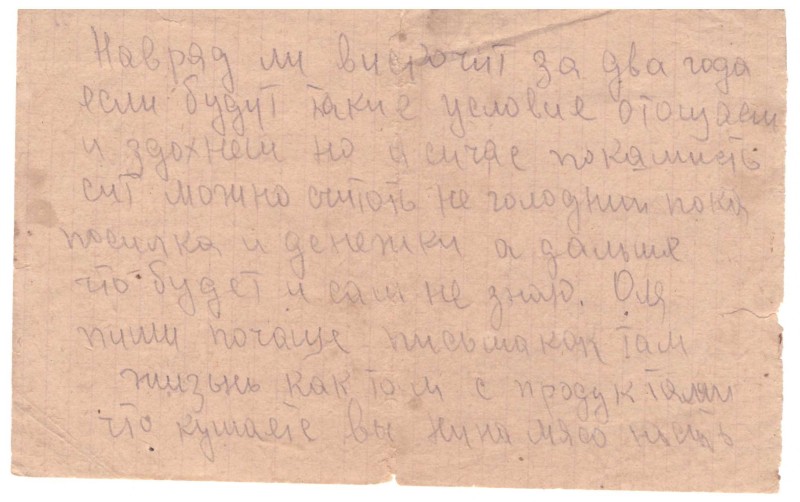 Навряд ли висрочит за два года
если будут такие условие отощаем
и здохнем но я сичас покамисть
сит можно считоть не голодний пока
посилка и денежки а дальше
что будет и сам не знаю. Оля
пиши почаще письма как там
жизьнь как там с продуктями
что кушаете вы Нина мясо